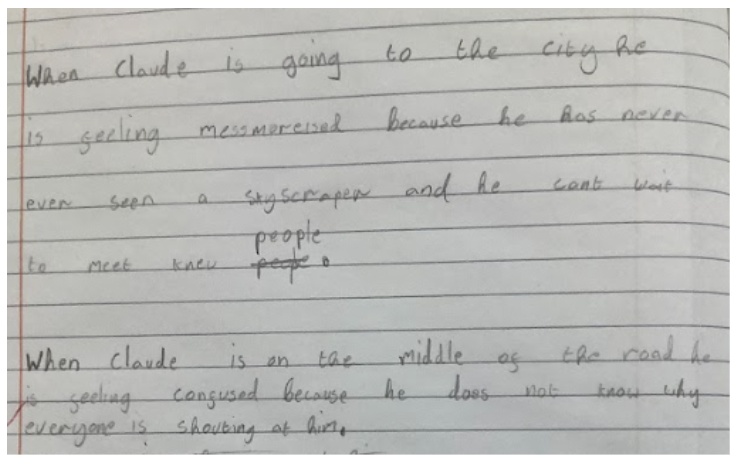 When Claude is going to the city he
is feeling messmoreised because he has never
ever seen a skyscraper and he cant wait
people
to meet knew peope.
When Claude is on the middle of the road he
is feeling confused because he does not know why
everyone is shouting at him.